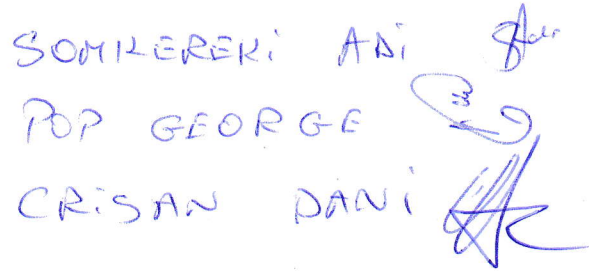 SOMKEREKi ADi
POP GEORGE
CRiSAN DANi